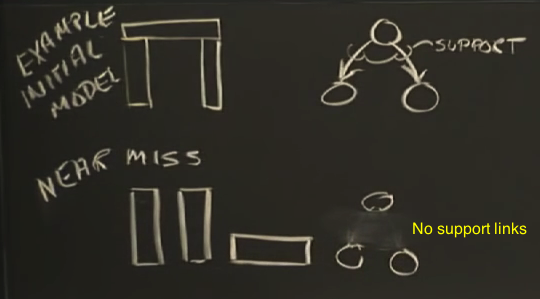 EXAMPLE
INITIAL
MODEL
SUPPORT
NEAR MISS
No support links